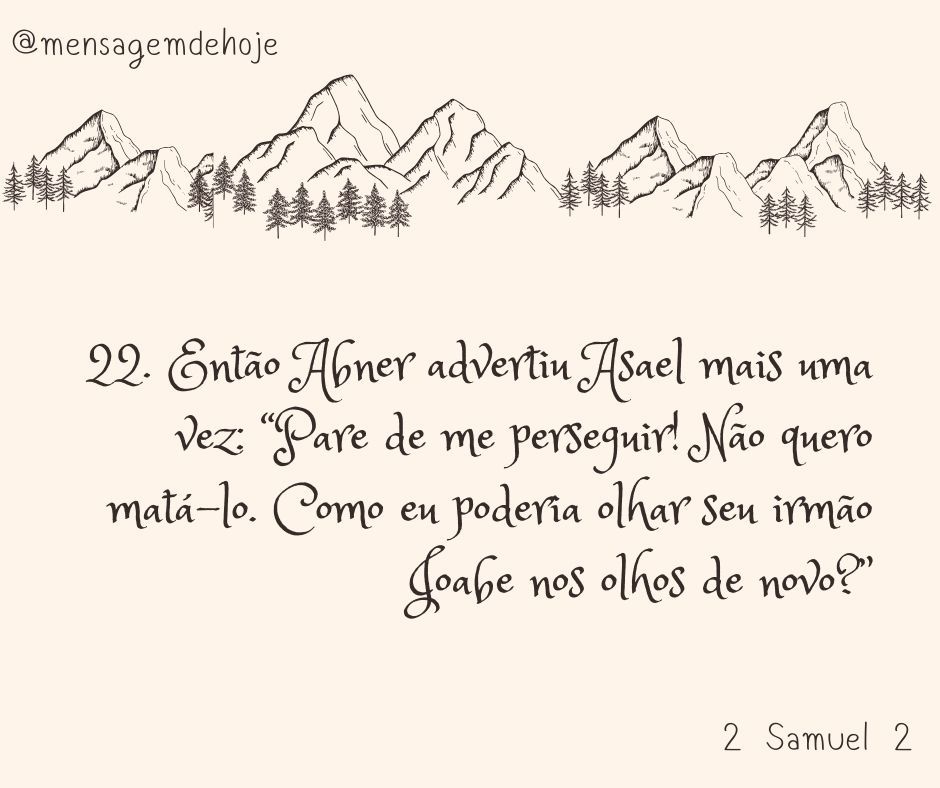 @mensagemdehoje
22. Então Abner advertiu Asael mais uma
vez: “Pare de me perseguir! Não quero
matá-lo. Como eu poderia olhar seu irmão
Joabe nos olhos de novo?”
2 Samuel 2